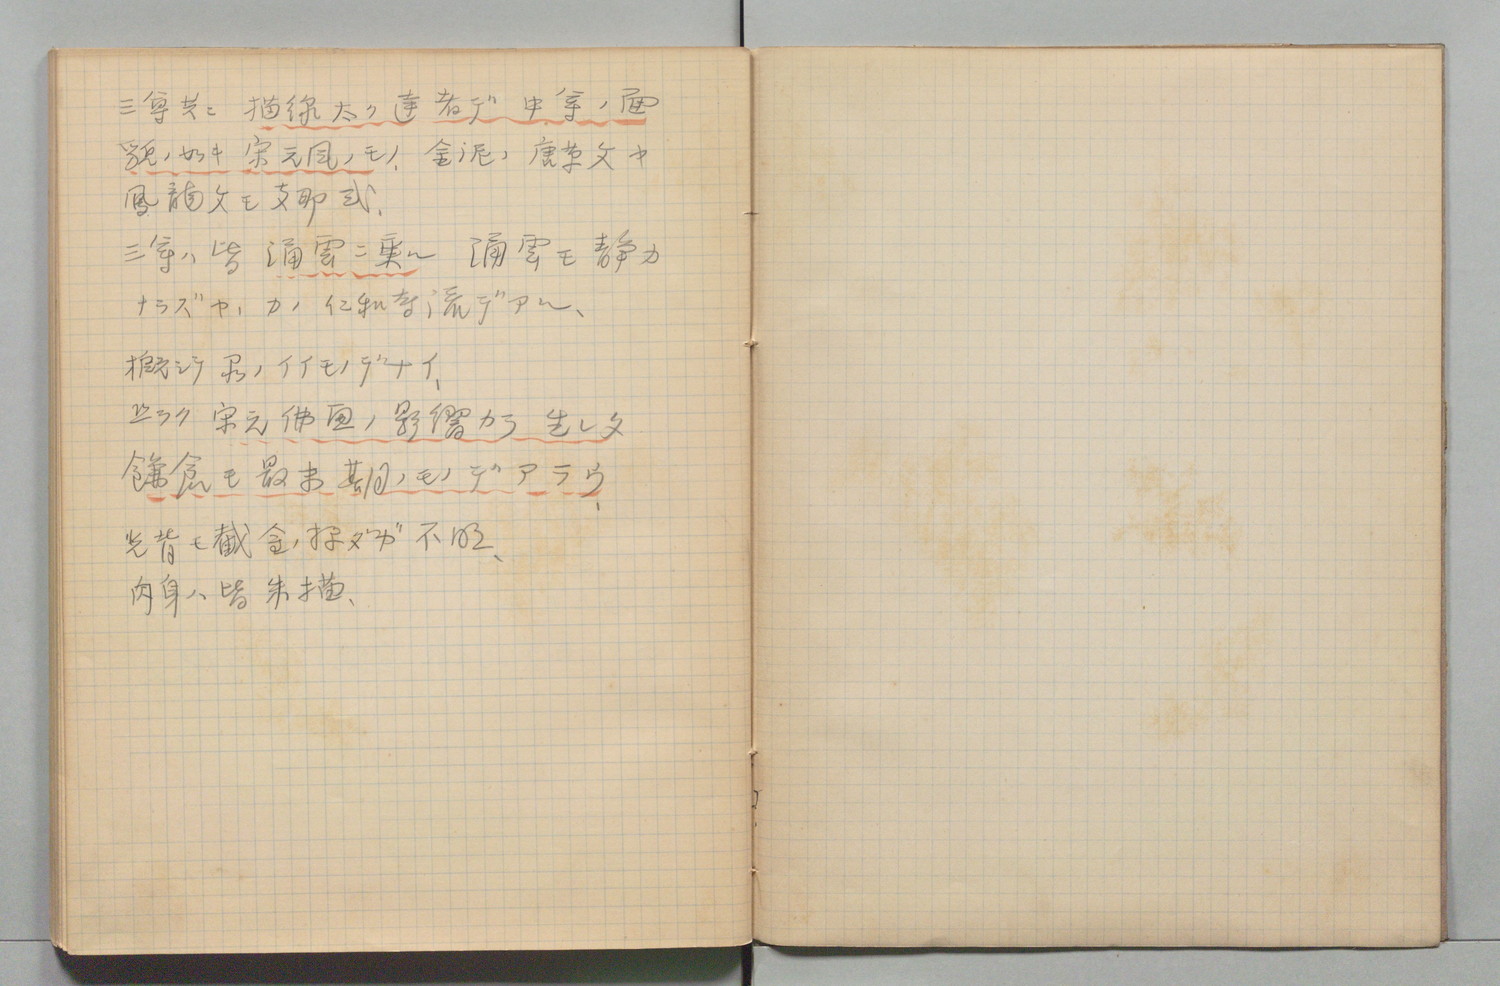 三尊共ニ 描線太ク達者デ 中尊ノ面
貌ノ如キ 宋元風ノモノ、金泥ノ 唐草文ヤ
鳳龍文モ支那式、
三尊ハ皆 涌雲ニ乗ル 涌雲モ静カ
ナラズヤヽカノ仁和寺流デアル、
概シテ 品ノイイモノデナイ、
恐ラク 宋元佛画ノ影響カラ 生レタ
鎌倉モ最末期ノモノデアラウ、
光背モ截金ノ様ダガ 不明、
肉身ハ皆 朱描、